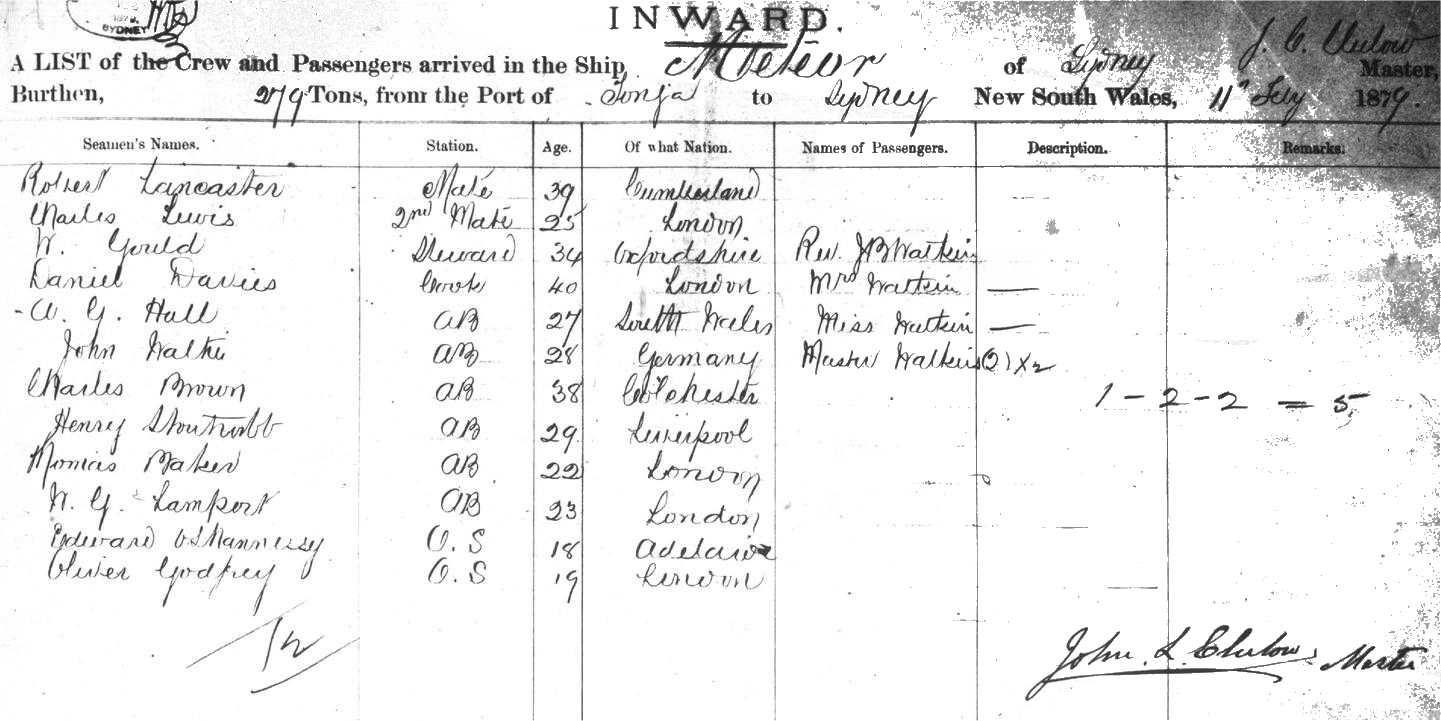 1879.
SYDNEY
INWARD.
A LIST of the Crew and Passengers arrived in the Ship Meteor of Sydney J. C. Clulow Master,
Burthen, 279 Tons, from the Port of Tonga to Sydney New South Wales, 11th July 1879.
Seamen's Names. Station. Age. Of what Nation. Names of Passengers. Description. Remarks.
Robert Lancaster Mate 39 Cumberland
Charles Lewis 2nd Mate 25 London
W. Gould Steward 34 Oxfordshire Rev. JB Watkin
Daniel Davies Cook 40 London Mrs Watkin —
A. G. Hall AB 27 South Wales Miss Watkin —
John AB 28 Germany Master Watkins
Charles Brown AB 38 Colchester 1 - 2 - 2 = 5
Henry AB 29 Liverpool
Thomas Baker AB 22 London
W. G. Lampert AB 23 London
Edward O'Shannessy O.S 18 Adelaide
Oliver Godfrey O.S 19 London
12
John. L. Clulow. Master